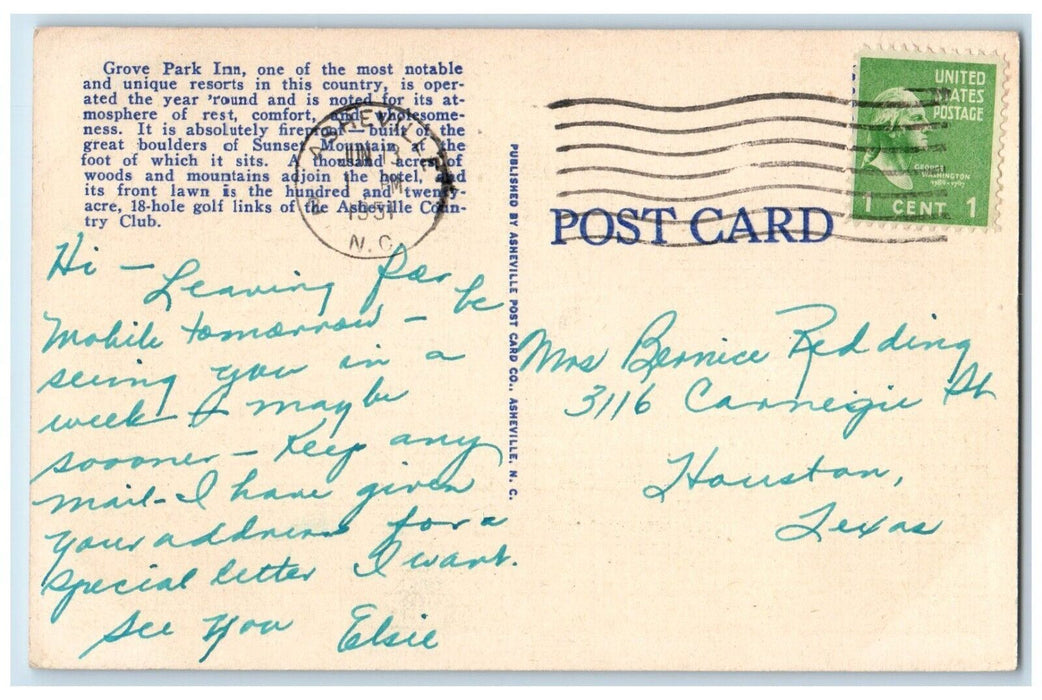 Grove Park Inn, one of the most notable
and unique resorts in this country, is oper-
ated the year 'round and is noted for its at-
mosphere of rest, comfort, and wholesome-
ness. It is absolutely fireproof—built of the
great boulders of Sunset Mountain at the
foot of which it sits. A thousand acres of
woods and mountains adjoin the hotel, and
its front lawn is the hundred and twenty-
acre, 18-hole golf links of the Asheville Coun-
try Club.
ASHEVILLE
JUN 3
PM
1951
N. C.
Hi — Leaving for
Mobile tomorrow — be
seeing you in a
week or maybe
sooner — Keep any
mail - I have given
your address for a
special letter I want.
See you Elsie
PUBLISHED BY ASHEVILLE POST CARD CO., ASHEVILLE, N. C.
UNITED
STATES
POSTAGE
GEORGE
WASHINGTON
1789-1797
1 CENT 1
POST CARD
Mrs Bernice Redding
3116 Carnegie St
Houston,
Texas